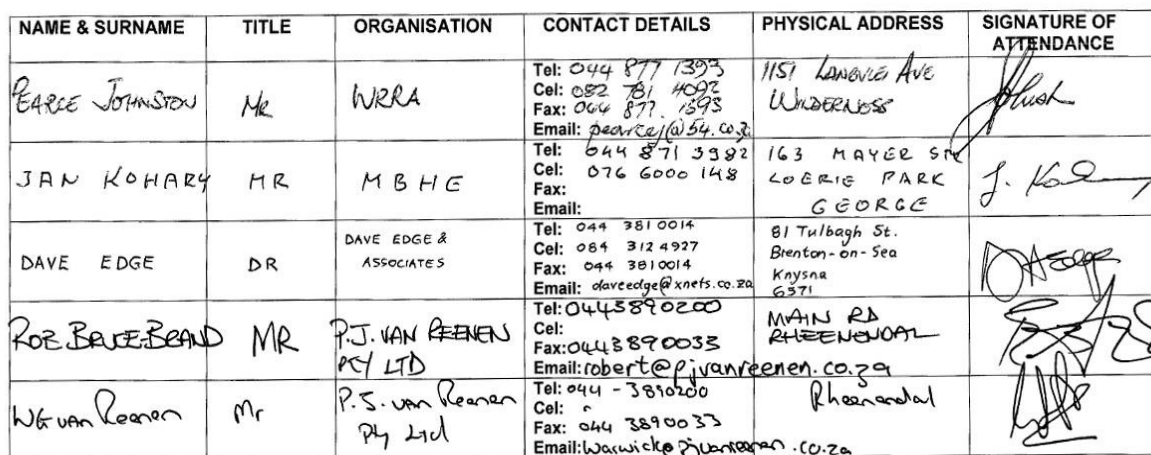 NAME & SURNAME TITLE ORGANISATION CONTACT DETAILS PHYSICAL ADDRESS SIGNATURE OF ATTENDANCE
PEARCE JOHNSTON Mr WRRA
Tel: 044 877 1393
Cel: 082 781 4092
Fax: 044 877. 1393
Email: pearcej@54.co.z
1151 Ave
WILDERNESS
JAN KOHARY MR MBHE
Tel: 044 871 3982
Cel: 076 6000 148
Fax:
Email:
163 MAYER
LOERIE PARK
GEORGE
J.
DAVE EDGE DR
DAVE EDGE &
ASSOCIATES
Tel: 044 3810014
Cel: 084 312 4927
Fax: 044 3810014
Email: daveedge@xnets.co.za
81 Tulbagh St.
Brenton-on-Sea
Knysna
6571
DAEdge
ROB BRUCE-BRAND MR
P.J. VAN REENEN
PTY LTD
Tel: 0443890200
Cel:
Fax: 0443890033
Email: robert@pjvanreenen.co.za
MAIN RD
RHEENENDAL
WG van Reenen Mr
P.J. van Reenen
Pty Ltd
Tel: 044 - 3890200
Cel:
Fax: 044 3890033
Email: warwick@pjvanreenen.co.za
Rheenendal